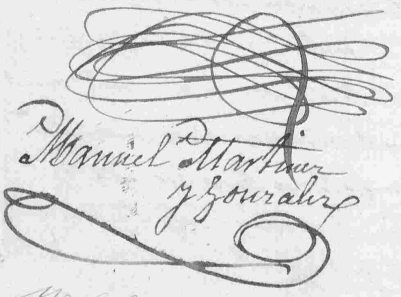 Manuel Martinez
y Gonzalez